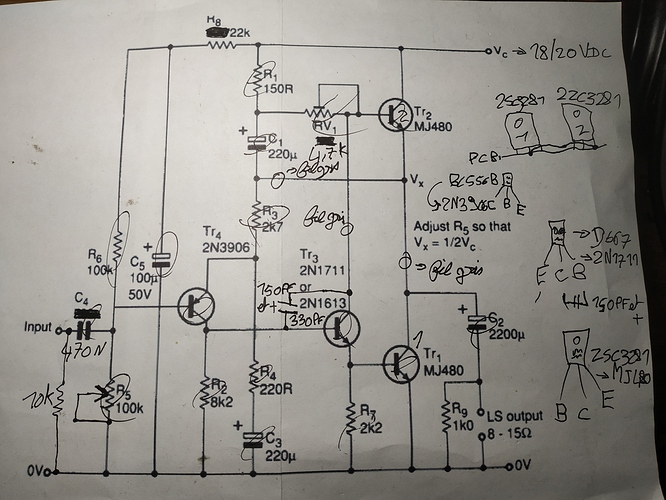 R8
22k
Vc → 18/20 VDC
R1
150R
RV1
4,7k
Tr2
MJ480
2SC3281
2SC3281
1
2
PCB
C1
220µ
Vx
BC556B
2N3906
C B E
R3
2k7
Adjust R5 so that
Vx = 1/2Vc
Tr4
2N3906
Tr3
2N1711
or
2N1613
150PF
et +
330PF
R6
100k
C5
100µ
50V
D667
2N1711
E C B
150PF et +
C4
470N
Input
10k
R5
100k
R2
8k2
R4
220R
C3
220µ
R7
2k2
1
Tr1
MJ480
C2
2200µ
R9
1k0
LS output
8 - 15Ω
2SC3281
→ MJ480
B C E
0V
0V